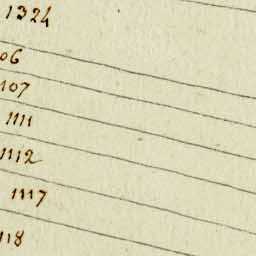 1324
06
107
1111
1112
1117
118